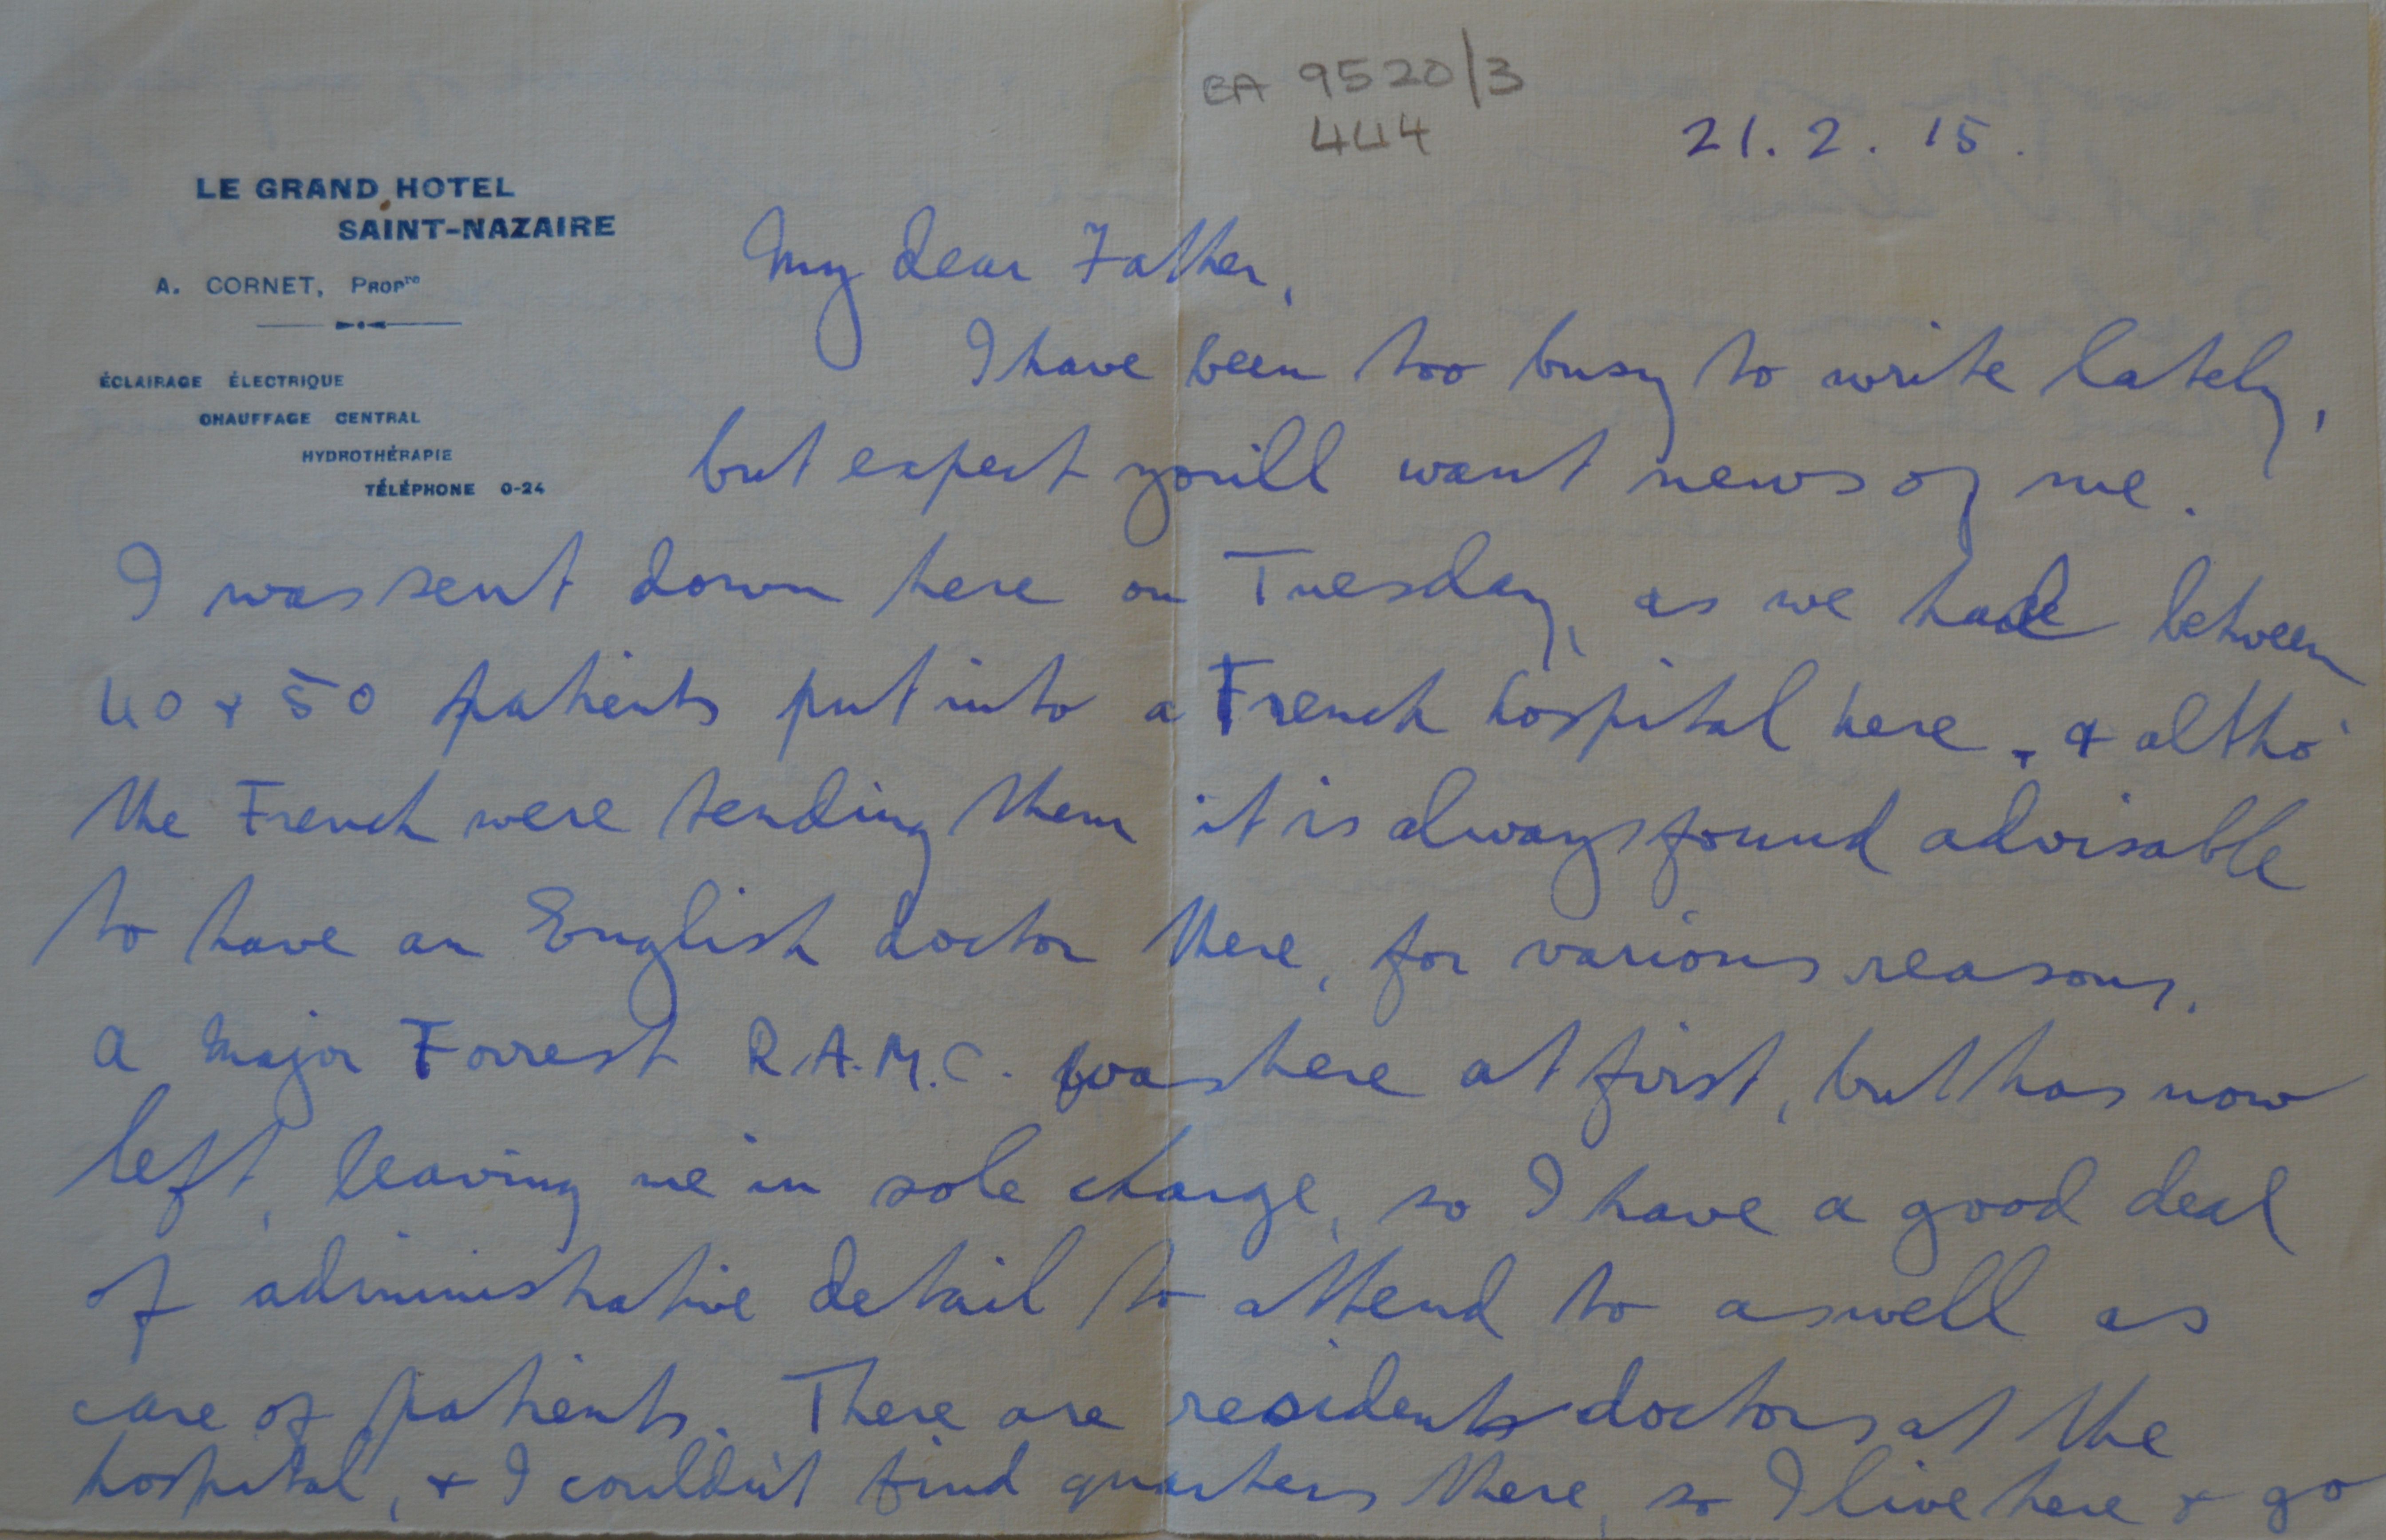 BA 9520/3
444
21.2.15.
LE GRAND HOTEL
SAINT-NAZAIRE
A. CORNET, Propre
ÉCLAIRAGE ÉLECTRIQUE
CHAUFFAGE CENTRAL
HYDROTHÉRAPIE
TÉLÉPHONE 0-24
My dear Father,
I have been too busy to write lately,
but expect you'll want news of me.
I was sent down here on Tuesday, as we have between
40 & 50 patients put into a French hospital here, & altho'
the French were tending them it is always found advisable
to have an English doctor there, for various reasons.
A Major Forrest R.A.M.C. was here at first, but has now
left, leaving me in sole charge, so I have a good deal
of administrative detail to attend to as well as
care of patients. There are resident doctors at the
hospital, & I couldn't find quarters there, so I live here & go